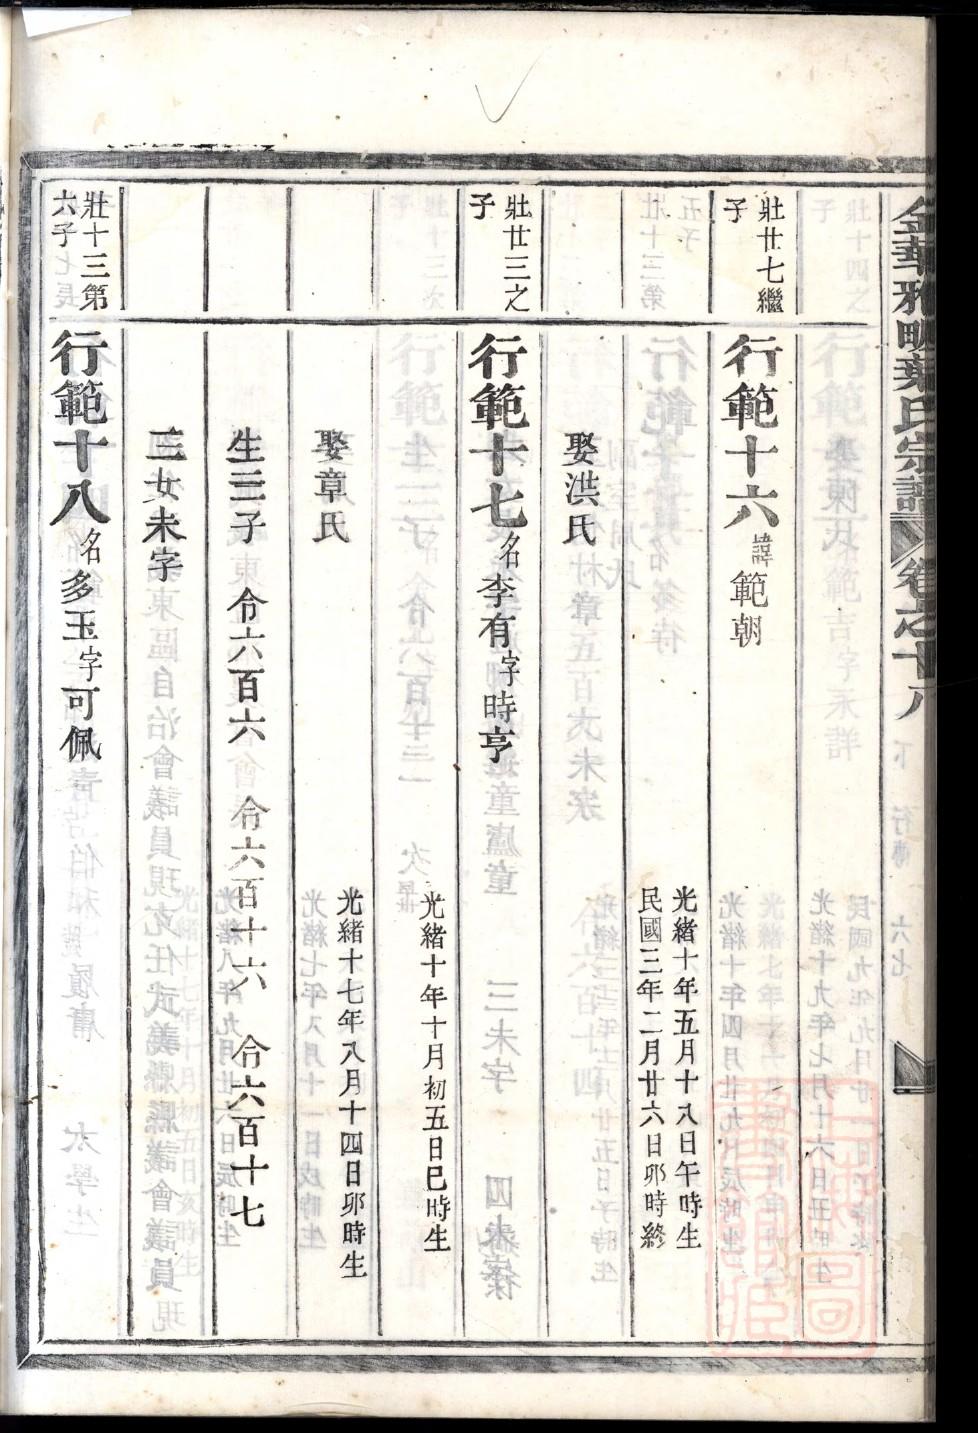 金華雅畈葉氏宗譜 卷之十八 下 行傳 六七
壯廿七繼子
行範十六 諱範朝
光緒十年五月十八日午時生
民國三年二月廿六日卯時終
娶洪氏
壯廿三之子
行範十七 名李有字時亨
光緒十年十月初五日巳時生
娶章氏
光緒十七年八月十四日卯時生
生三子 令六百六 令六百十六 令六百十七
三女未字
壯十三第六子
行範十八 名多玉字可佩